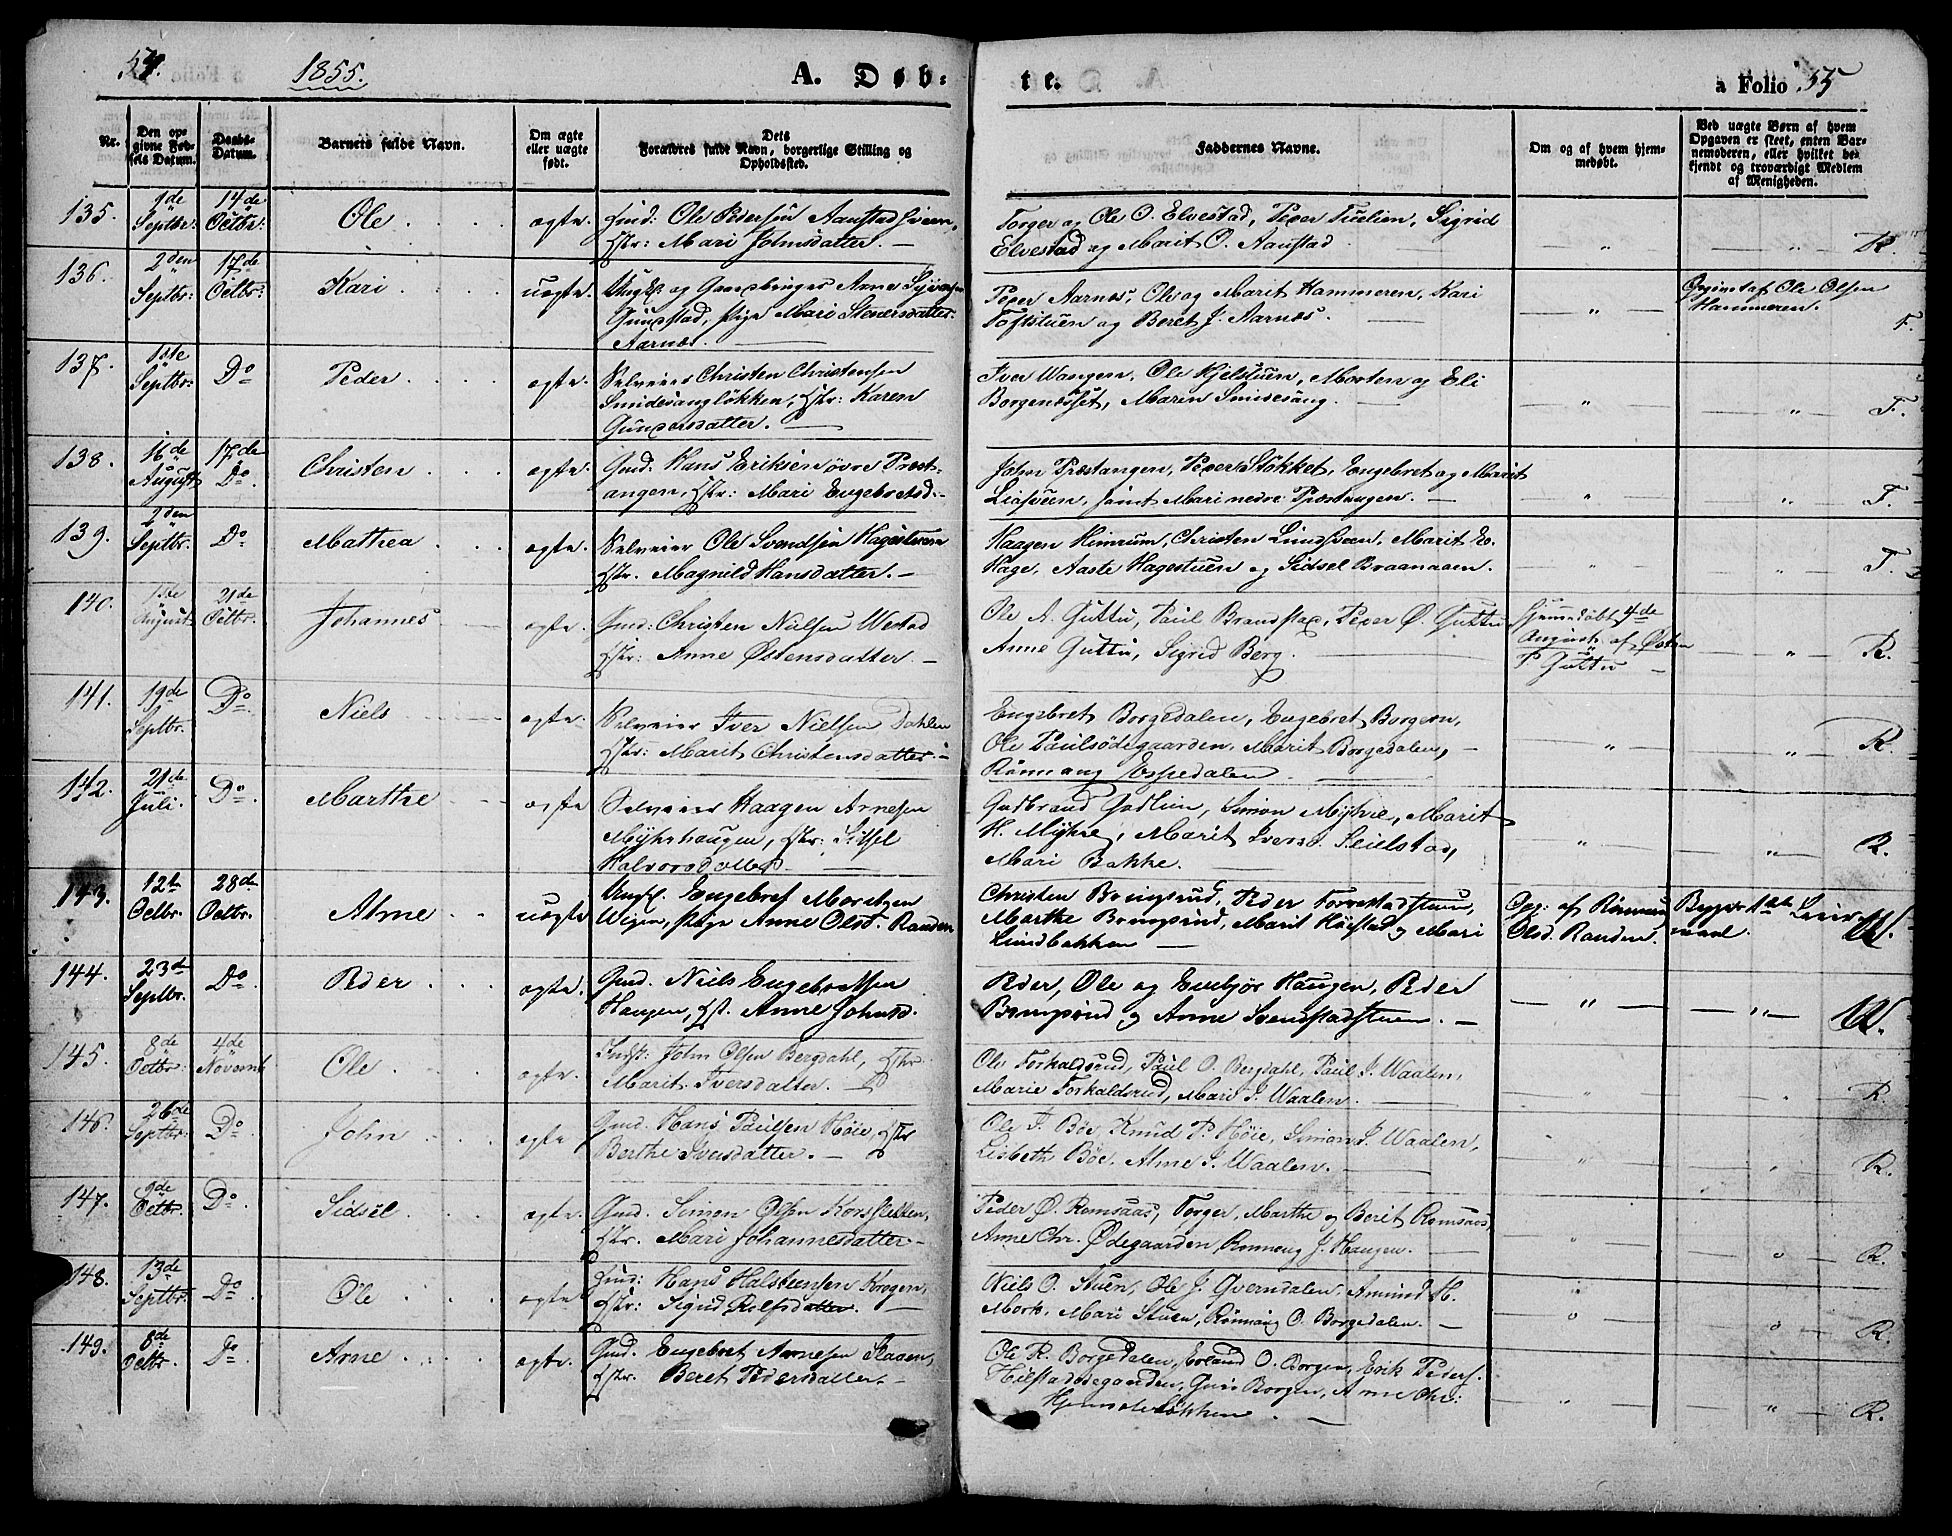 54.
1855.
A. Døb=
te.
a Folio 55
Nr.
Den op=
givne Fød=
sels Datum.
Daabs=
Datum.
Barnets fulde Navn.
Om ægte
eller uægte
født.
Dets
Forældres fulde Navn, borgerlige Stilling og
Opholdssted.
Faddernes Navne.
Om og af hvem hjem=
medøbt.
Ved uægte Børn af hvem
Opgaven er skeet, enten Bar=
nemoderen, eller hvilket be=
kjendt og troværdigt Medlem
af Menigheden.
135.
Septbr:
14de
Octbr:
Ole
ægte.
Ole Pedersen
Hstr: Mari Johnsdatter. —
Torger og Ole O. Elvestad, Peder Sigrid
Elvestad og Marit O. Aanstad
R.
136.
2den
Septbr:
17de
Octbr:
Kari
uægte.
Ungk. og Gaardbruger Arne
Pige Mari Stenersdatter
Aarnæs.
Peder Aarnæs, Ole og Marit Hammeren, Kari
Toftstuen og Beret J. Aarnæs.
Opgivet af Ole Olsen
Hammeren.
F.
137.
1ste
Septbr:
Do
Peder
ægte.
Selveier Christen Christensen
Hstr: Karen
Gundersdatter.
Iver Wangen, Ole Kjelstuen, Morten og Eli
Maren
F.
138.
16de
August
17de
Do
Christen
ægte.
Gmd. Hans Eriksen øvre Præst-
angen, Hstr: Mari Engebretsd.
John Præstangen, Peder Engebret og Marit
samt Mari nedre Præstangen.
F.
139.
2den
Septbr.
Do
Mathea
ægte.
Selveier Ole Svendsen Hagestuen
Hstr. Magnild Hansdatter. —
Haagen Christen Marit E.
Hage, Aaste Hagestuen og Sidsel Braanaaen.
F.
140.
1ste
August
21de
Octbr.
Johannes
ægte.
Gmd: Christen Nielsen
Hstr: Anne Østensdatter. —
Ole A. Guttu, Paul Peder Ø. Guttu
Anne Guttu, Sigrid Berg.
Hjemmedøbt 4de
August af Østen
P. Guttu
R.
141.
19de
Septbr.
Do
Niels
ægte.
Selveier Iver Nielsen Dahlen
Hstr: Marit Christensdatter. —
Engebret Borgedalen, Engebret Borgen,
Ole Paulsødegaarden, Marit Borgedalen,
Rønnaug Espedalen.
R.
142.
21de
Juli.
Do
Marthe
ægte
Selveier Haagen Arnesen
Myhrehaugen, Hstr: Sidsel
Halvorsdatter.
Gudbrand Simon Myhre, Marit
H. Myhre, Marit Seielstad,
Mari Bakke.
R.
143.
12te
Octbr.
28de
Octbr.
Anne
uægte
Ungk. Engebret Moretzen
Wigen, Pige Anne Olsd. Randen
Christen Bringsrud, Peder Forrestadstuen,
Marthe Bringsrud, Marit og Mari
Lundbakken —
Opg: af Rønnaug
Olsd. Randen.
Begges 1ste Leier-
maal.
W.
144.
23de
Septbr.
Do
Peder
ægte.
Gmd. Niels Engebretsen
Haugen, Hst. Anne Johnsd.
Peder, Ole og Embjør Haugen, Peder
Bringsrud og Anne Svendstadstuen. —
W.
145.
8de
Octbr:
4de
Novembr
Ole
ægte.
Indst: John Olsen Bergdahl, Hstr
Marit Iversdatter. —
Ole Forkaldsrud, Paul O. Bergdahl, Paul J. Waalen,
Marie Forkaldsrud, Mari J. Waalen. —
R.
146.
26de
Septbr:
Do
John
ægte
Gmd. Hans Paulsen Høie, Hstr
Berthe Iversdatter. —
Ole J. Bøe, Knud P. Høie, Simon J. Waalen,
Lisbeth Bøe, Anne J. Waalen. —
R.
147.
9de
Octbr.
Do
Sidsel
ægte.
Gmd. Simon Olsen Korssletten,
Hstr. Mari Johannesdatter. —
Peder Ø. Romsaas, Torger, Marthe og Berit Romsaas,
Anne Chr. Ødegaarden, Rønnaug J. Haugen. —
R.
148.
13de
Septbr.
Do
Ole
ægte
Gmd: Hans Halstensen Krogen,
Hstr: Sigrid Rolfsdatter. —
Niels O. Stuen, Ole J. Qverndalen, Amund H.
Mork, Mari Stuen, Rønnaug O. Borgedalen. —
R.
149.
8de
Octbr.
Do
Arne
ægte.
Gmd. Engebret Arnesen Slaaen,
Hstr. Beret Pedersdatter. —
Ole R. Borgedalen, Erland O. Borgen, Erik Peders.
Guri Borgen, Anne Chr:
R.